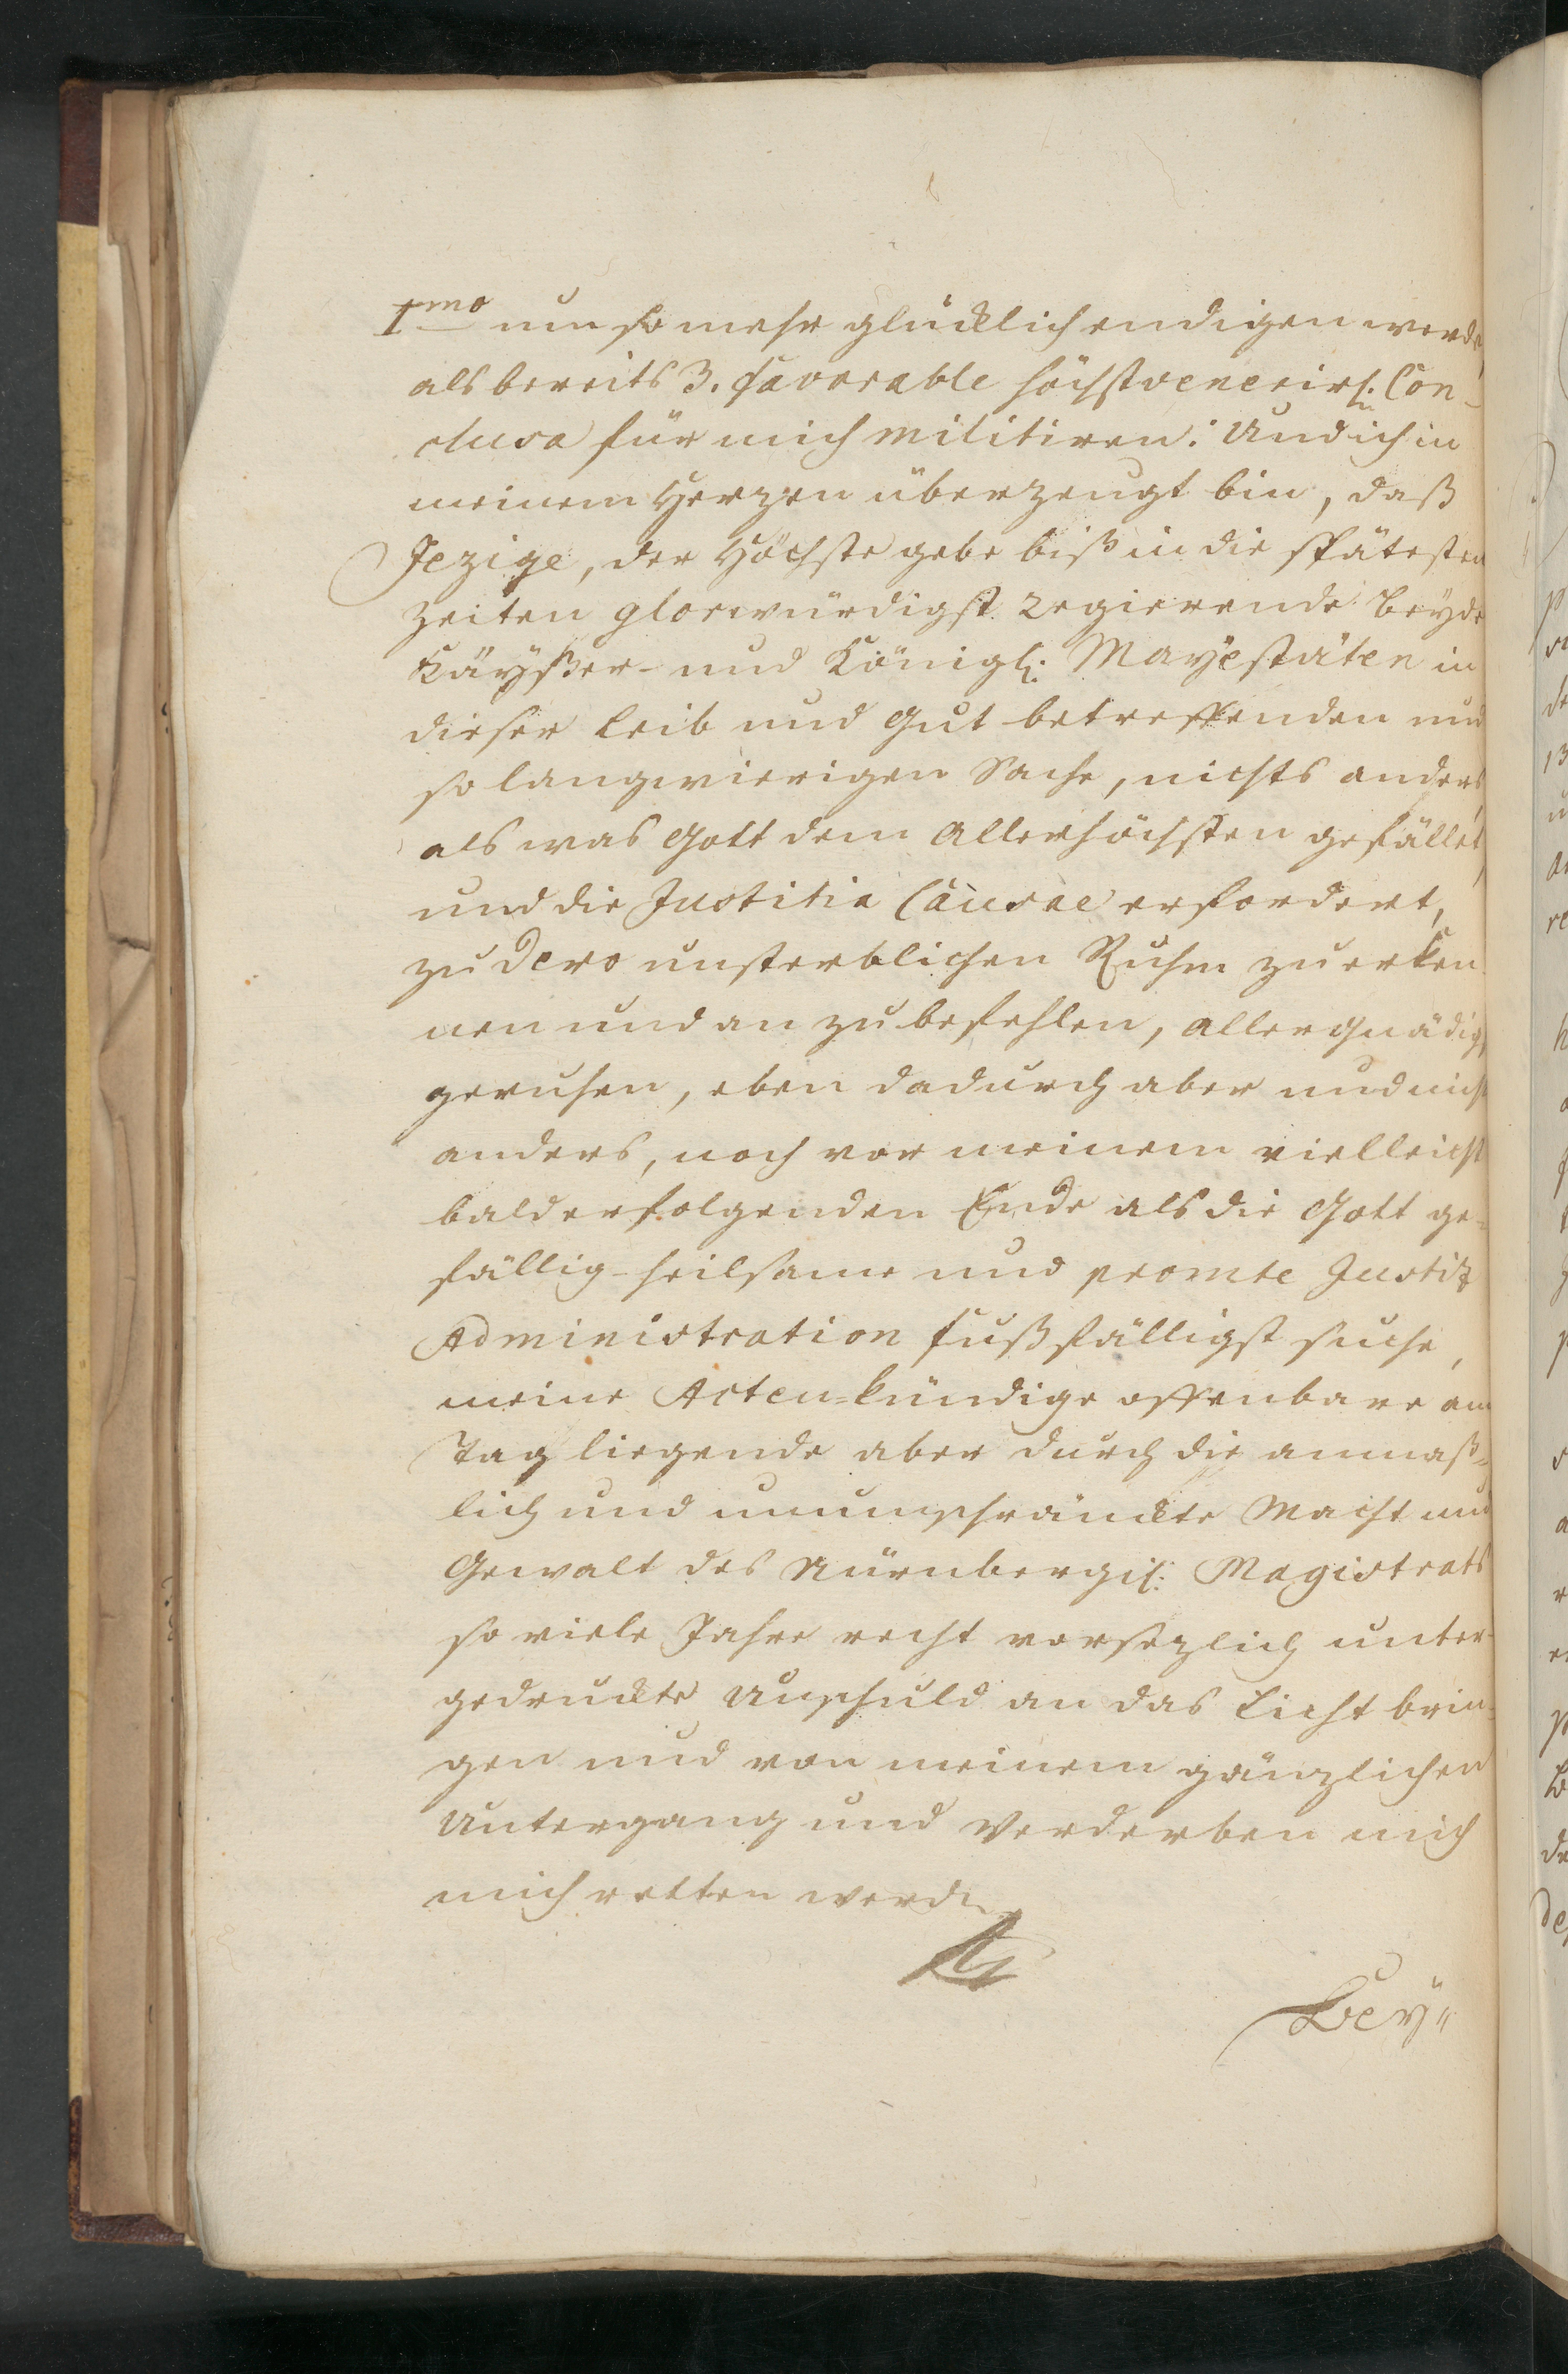 1mo um so mehr glücklich endigen werde,
als bereits 3. favorable höchstvenerirl: Con-
clusa für mich militiren: Und ich in
meinem Herzen überzeugt bin, daß
Jezige, der Höchste gebe biß in die spätesten
Zeiten glorwürdigst Regierende beyde
Käyßer- und Königl: Mayestäten in
dieser Leib und Gut betreffenden und
so langwierigen Sache, nichts anders,
als was Gott dem Allerhöchsten gefället,
und die Justitia Causae erfordert,
zu Dero unsterblichen Ruhm zu erken-
nen und an zu befehlen, allergnädigst
geruhen, eben dadurch aber und nicht
anders, noch vor meinem vielleicht
bald erfolgenden Ende als die Gott ge-
fällig-heilsame und promte Justiz
Administration fußfälligst suche,
meine Acten-kündige offenbare am
Tag liegende aber durch die anmaß-
lich und unumschränckte Macht und
Gewalt des Nürnbergis: Magistrats
so viele Jahre recht vorsezlich unter-
gedruckte Unschuld an das Licht brin-
gen und von meinem gänzlichen
Untergang und Verderben mich
mich retten werde.
Bey=